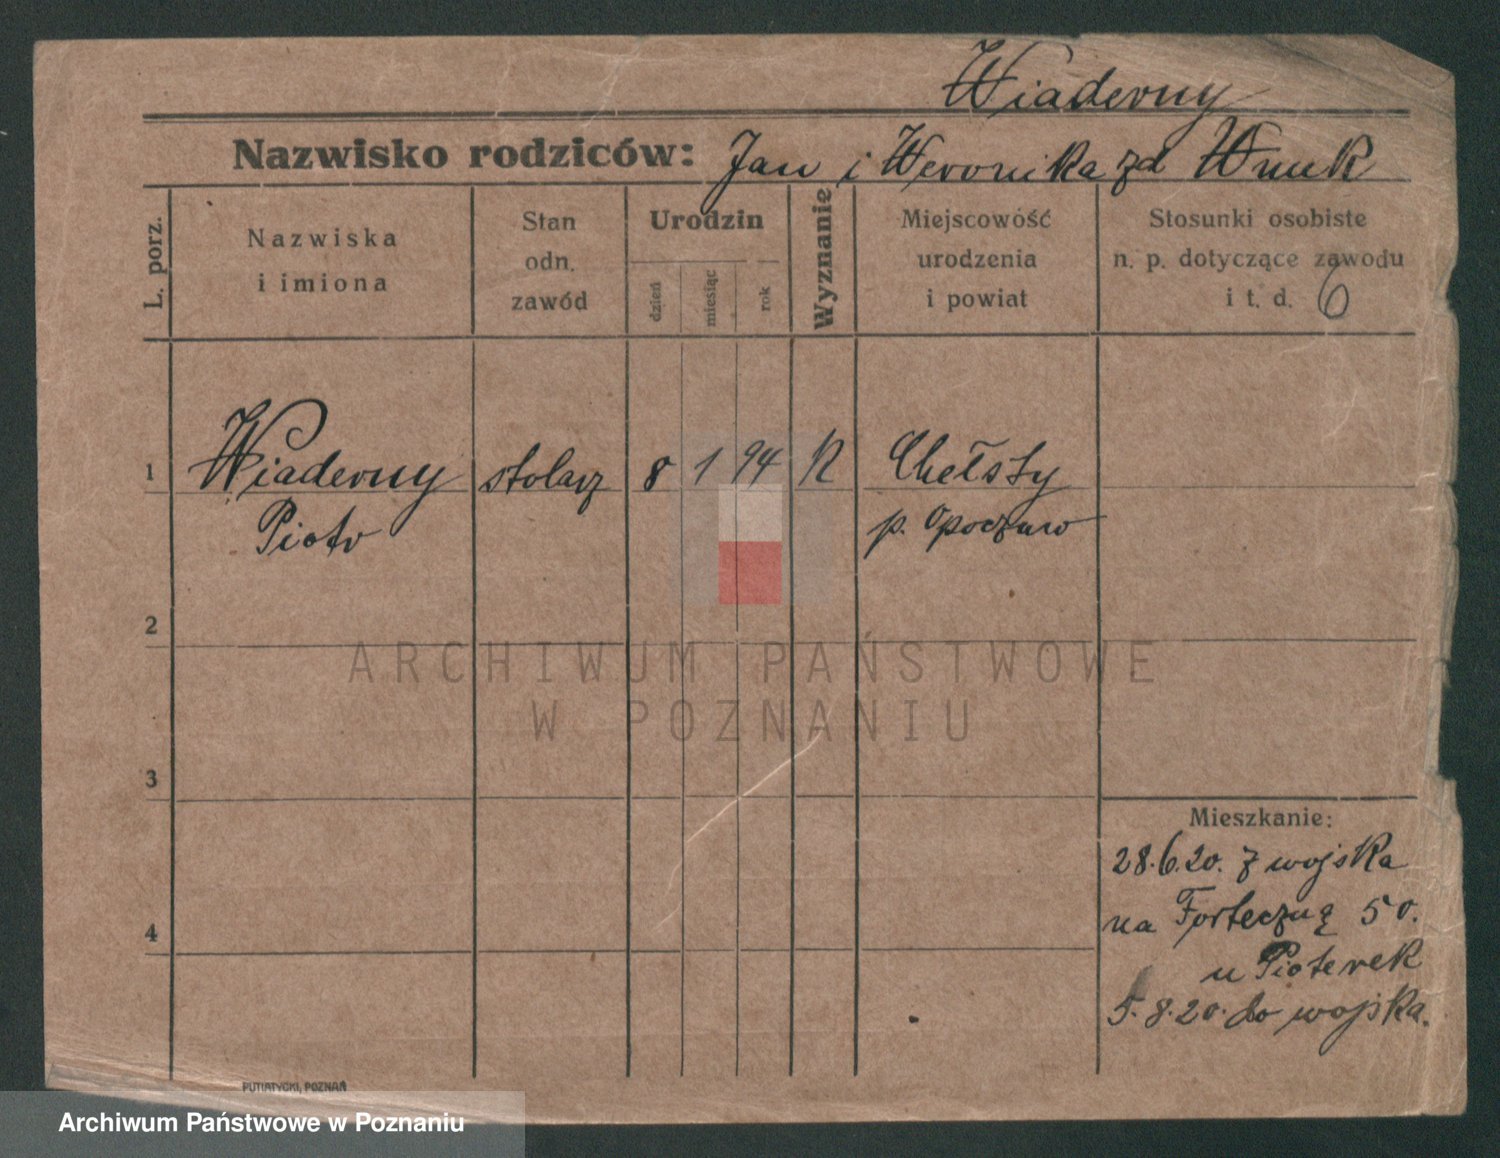 Wiaderny
Nazwisko rodziców: Jan i Weronika zd Wnuk
L. porz.
Nazwiska
i imiona
Stan
odn.
zawód
Urodzin
dzień
miesiąc
rok
Wyznanie
Miejscowość
urodzenia
i powiat
Stosunki osobiste
n. p. dotyczące zawodu
i t. d. 6
1 Wiaderny stolarz 8 1 94 R Chełsty
Piotr p. Opoczno
2
3
4
Mieszkanie:
28.6.20. z wojska
na Forteczną 50.
u Pioterek
5.8.20. do wojska.
PUTIATYCKI, POZNAŃ
ARCHIWUM PAŃSTWOWE
W POZNANIU
Archiwum Państwowe w Poznaniu